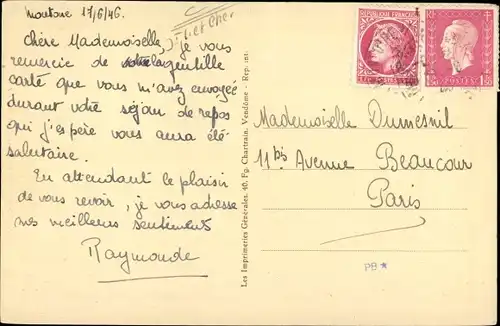 Montoire 17/6/46.
Loir et Cher
Chère Mademoiselle, je vous
remercie de votre la gentille
carte que vous m'avez envoyée
durant votre séjour de repos
qui j'espère vous aura été
salutaire.
En attendant le plaisir
de vous revoir, je vous adresse
mes meilleurs sentiments
Raymonde
Les Imprimeries Générales, 40, Fg. Chartrain, Vendôme - Rep. int.
REPUBLIQUE FRANÇAISE
Mademoiselle Dumesnil
11 bis Avenue Beaucour
Paris
PB